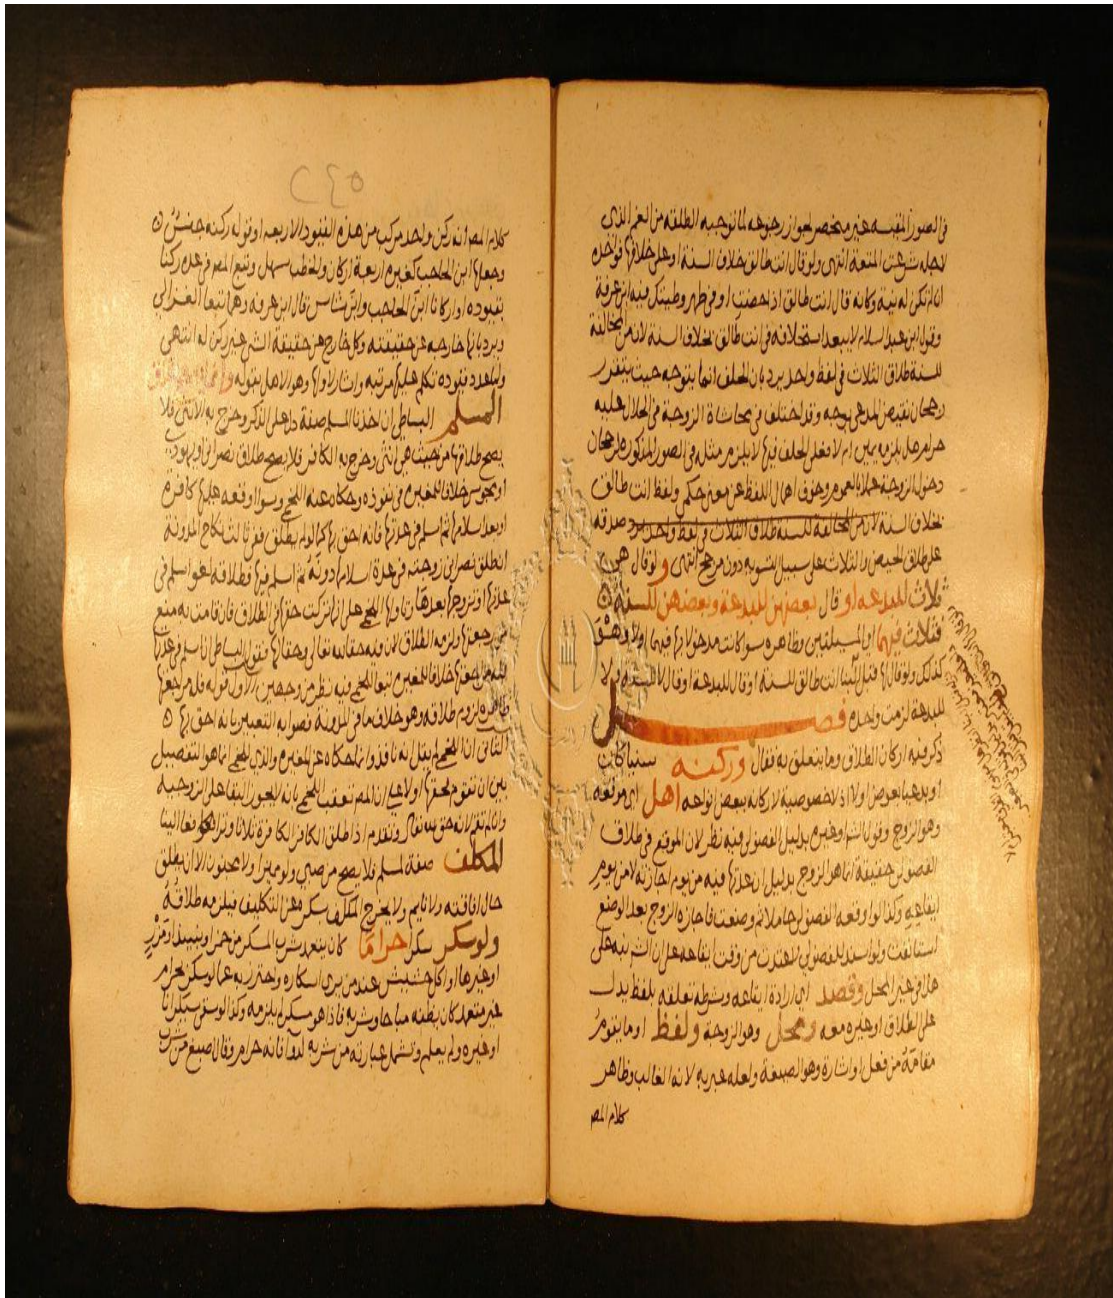 في الصور المقيسة غير منحصر لجواز رجوعه لما توجبه الطلقة من الغم الذي
لاجله شرعت المتعة انتهى ولو قال انت طالق خلاف السنة او على خلافها فواحدة
ان لم تكن له نية وكانه قال انت طالق اذا حضت او في طهر وطيتك فيه ابن عرفة
وقول ابن عبد السلام لا يبعد استحلافه في انت طالق بخلاف السنة لان من مخالفة
السنة طلاق الثلاث في لفظ واحد يرد بان الحلف انما يتوجه حيث يتقرر
رجحان نقيض المدعى بوجه وقد اختلف في محاشاة الزوجة في الحلال عليه
حرام هل يلزمه يمين ام لا فعلى الحلف فيها لا يلزم مثله في الصور المذكورة لرجحان
دخول الزوجة عملا بالعموم وخوف اهمال اللفظ عن معنى حكمي ولفظ انت طالق
بخلاف السنة لان من المخالفة للسنة طلاق الثلاث في لفظ واحد يرد صدقه
على طلاق الحيض والثلاث على سبيل التسوية دون مرجح انتهى ولو قال هي
ثلاث للبدعة او قال بعضهن للبدعة وبعضهن للسنة
فثلاث فيهما اي المسئلتين وظاهره سوا كانت مدخولا بها فيهما اولا وهو
كذلك ولو قال لها قبل البنا انت طالق للسنة او قال للبدعة او قال لا للسنة ولا
للبدعة لزمت واحدة فصل
ذكر فيه اركان الطلاق وما يتعلق به فقال وركنه سنيا كان
او بدعيا بعوض اولا اذ لا خصوصية لاركانه ببعض انواعه اهل اي موقعه
وهو الزوج وقول الشم وغيره بدليل الفضولي فيه نظر لان الموقع في طلاق
الفضولي حقيقة انما هو الزوج بدليل ان عدتها فيه من يوم اجازته لا من يوم
ايقاعه وكذا لو اوقعه الفضولي حاملا ثم وضعت فاجازه الزوج بعد الوضع
استانفت ولو استند للفضولي لاعتدت من وقت ايقاعه
وقصد اي ارادة ايقاعه وشرطه تعلقه بلفظ يدل
على الطلاق او غيره معه ومحل وهو الزوجة ولفظ او ما يقوم
مقامه من فعل او اشارة وهو الصيغة ولعله عبر به لانه الغالب وظاهر
كلام المصم
٢٤٥
كلام المصم انه ركن واحد مركب من هذه القيود الاربعة او قوله ركنه جنس
وجعلها ابن الحاجب كغيره اربعة اركان والخطب سهل وتبع المصم في عده ركنا
بقيوده او اركانا ابن الحاجب وابن شاس قال ابن عرفة وهما تبعا الغزالي
ويرد بانها خارجة عن حقيقته وكل خارج عن حقيقة الشي غير ركن له انتهى
ولما عدد قيوده تكلم عليها مرتبة واشار لاولها وهو الاهل بقوله وانما يصح طلاق
المسلم البساطي ان اخذنا المسلم صفة دل على الذكر وخرج به الانثى فلا
يصح طلاقها من حيث هي انثى وخرج به الكافر فلا يصح طلاق نصراني او يهودي
او مجوسي خلافا للمغيرة في نفوذه وحكاه عنه اللخمي وسوا اوقعه عليها كافرة
او بعد اسلامها ثم اسلم في عدتها فانه احق بها كما لو لم يطلق ففي ثالث نكاح المدونة
ان طلق نصراني زوجته في عدة اسلامها دونه ثم اسلم فيها فطلاقه لغو اسلم في
عدتها او تزوجها بعدها وتاولها اللخمي على انها تركت حقها في الطلاق فان قامت به منع
من رجعتها ولزمه الطلاق لان فيه حقا لله تعالى وحقا لها فقول البساطي ان اسلم في عدتها
فله مراجعتها خلافا للمغيرة تبعا للخمي فيه نظر من وجهين الاول قوله فله مراجعتها
ظاهره لزوم طلاقه وهو خلاف ما في المدونة فصوابه التعبير بانه احق بها
الثاني ان اللخمي لم يقل انه نافذ وانما حكاه عن المغيرة والذي للخمي انما هو التفصيل
بين ان تقوم بحقها اولا
المكلف صفة لمسلم فلا يصح من صبي ولو مميزا ولا مجنون الا ان يطلق
حال افاقته ولا نايم ولا يخرج المكلف بسكره عن التكليف فيلزمه طلاقه
ولو سكر سكرا حراما كان يتعمد شرب المسكر من خمر او نبيذ او مزر
او غيرها او اكل حشيش عند من يرى اسكاره واحترز به عما لو سكر بحرام
غير متعمد كان يظنه مباحا وشربه فاذا هو مسكر لم يلزمه وكذا لو سقى سيكرانا
او غيره ولم يعلم وتشمل عبارته من شربه لتداو فانه حرام وقال اصبغ من شرب